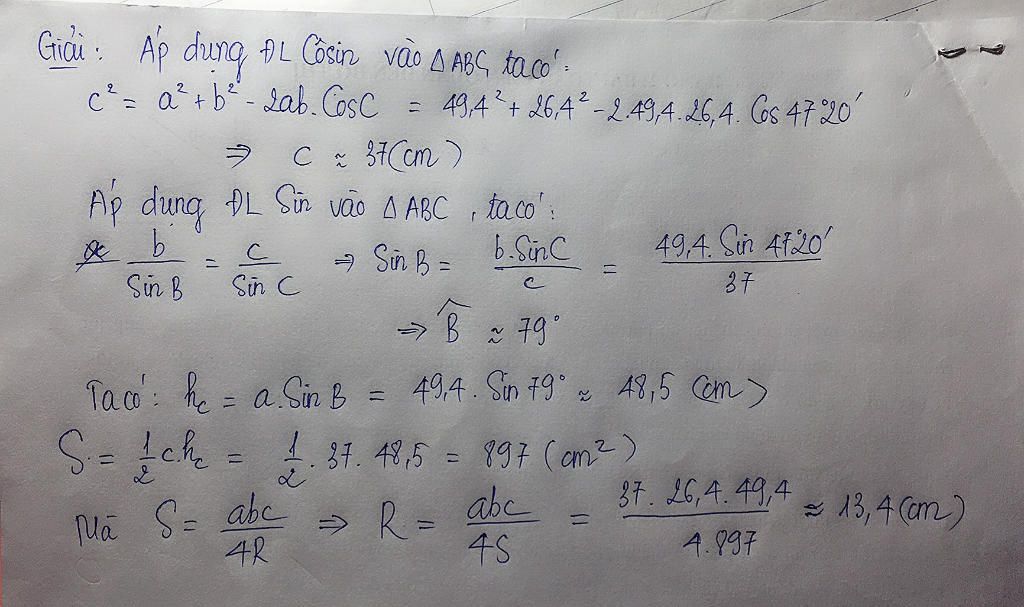 Giải: Áp dụng ĐL Côsin vào △ABC, ta có:
c² = a² + b² - 2ab.CosC = 49,4² + 26,4² - 2.49,4.26,4.Cos 47°20'
⇒ c ≈ 37(cm)
Áp dụng ĐL Sin vào △ABC, ta có:
b/Sin B = c/Sin C ⇒ Sin B = b.SinC/c = 49,4.Sin 47°20'/37
⇒ B̂ ≈ 79°
Ta có: h_c = a.Sin B = 49,4.Sin 79° ≈ 48,5 (cm)
S = 1/2 c.h_c = 1/2 . 37. 48,5 = 897 (cm²)
Mà S = abc/4R ⇒ R = abc/4S = 37. 26,4. 49,4/4.897 ≈ 13,4(cm)